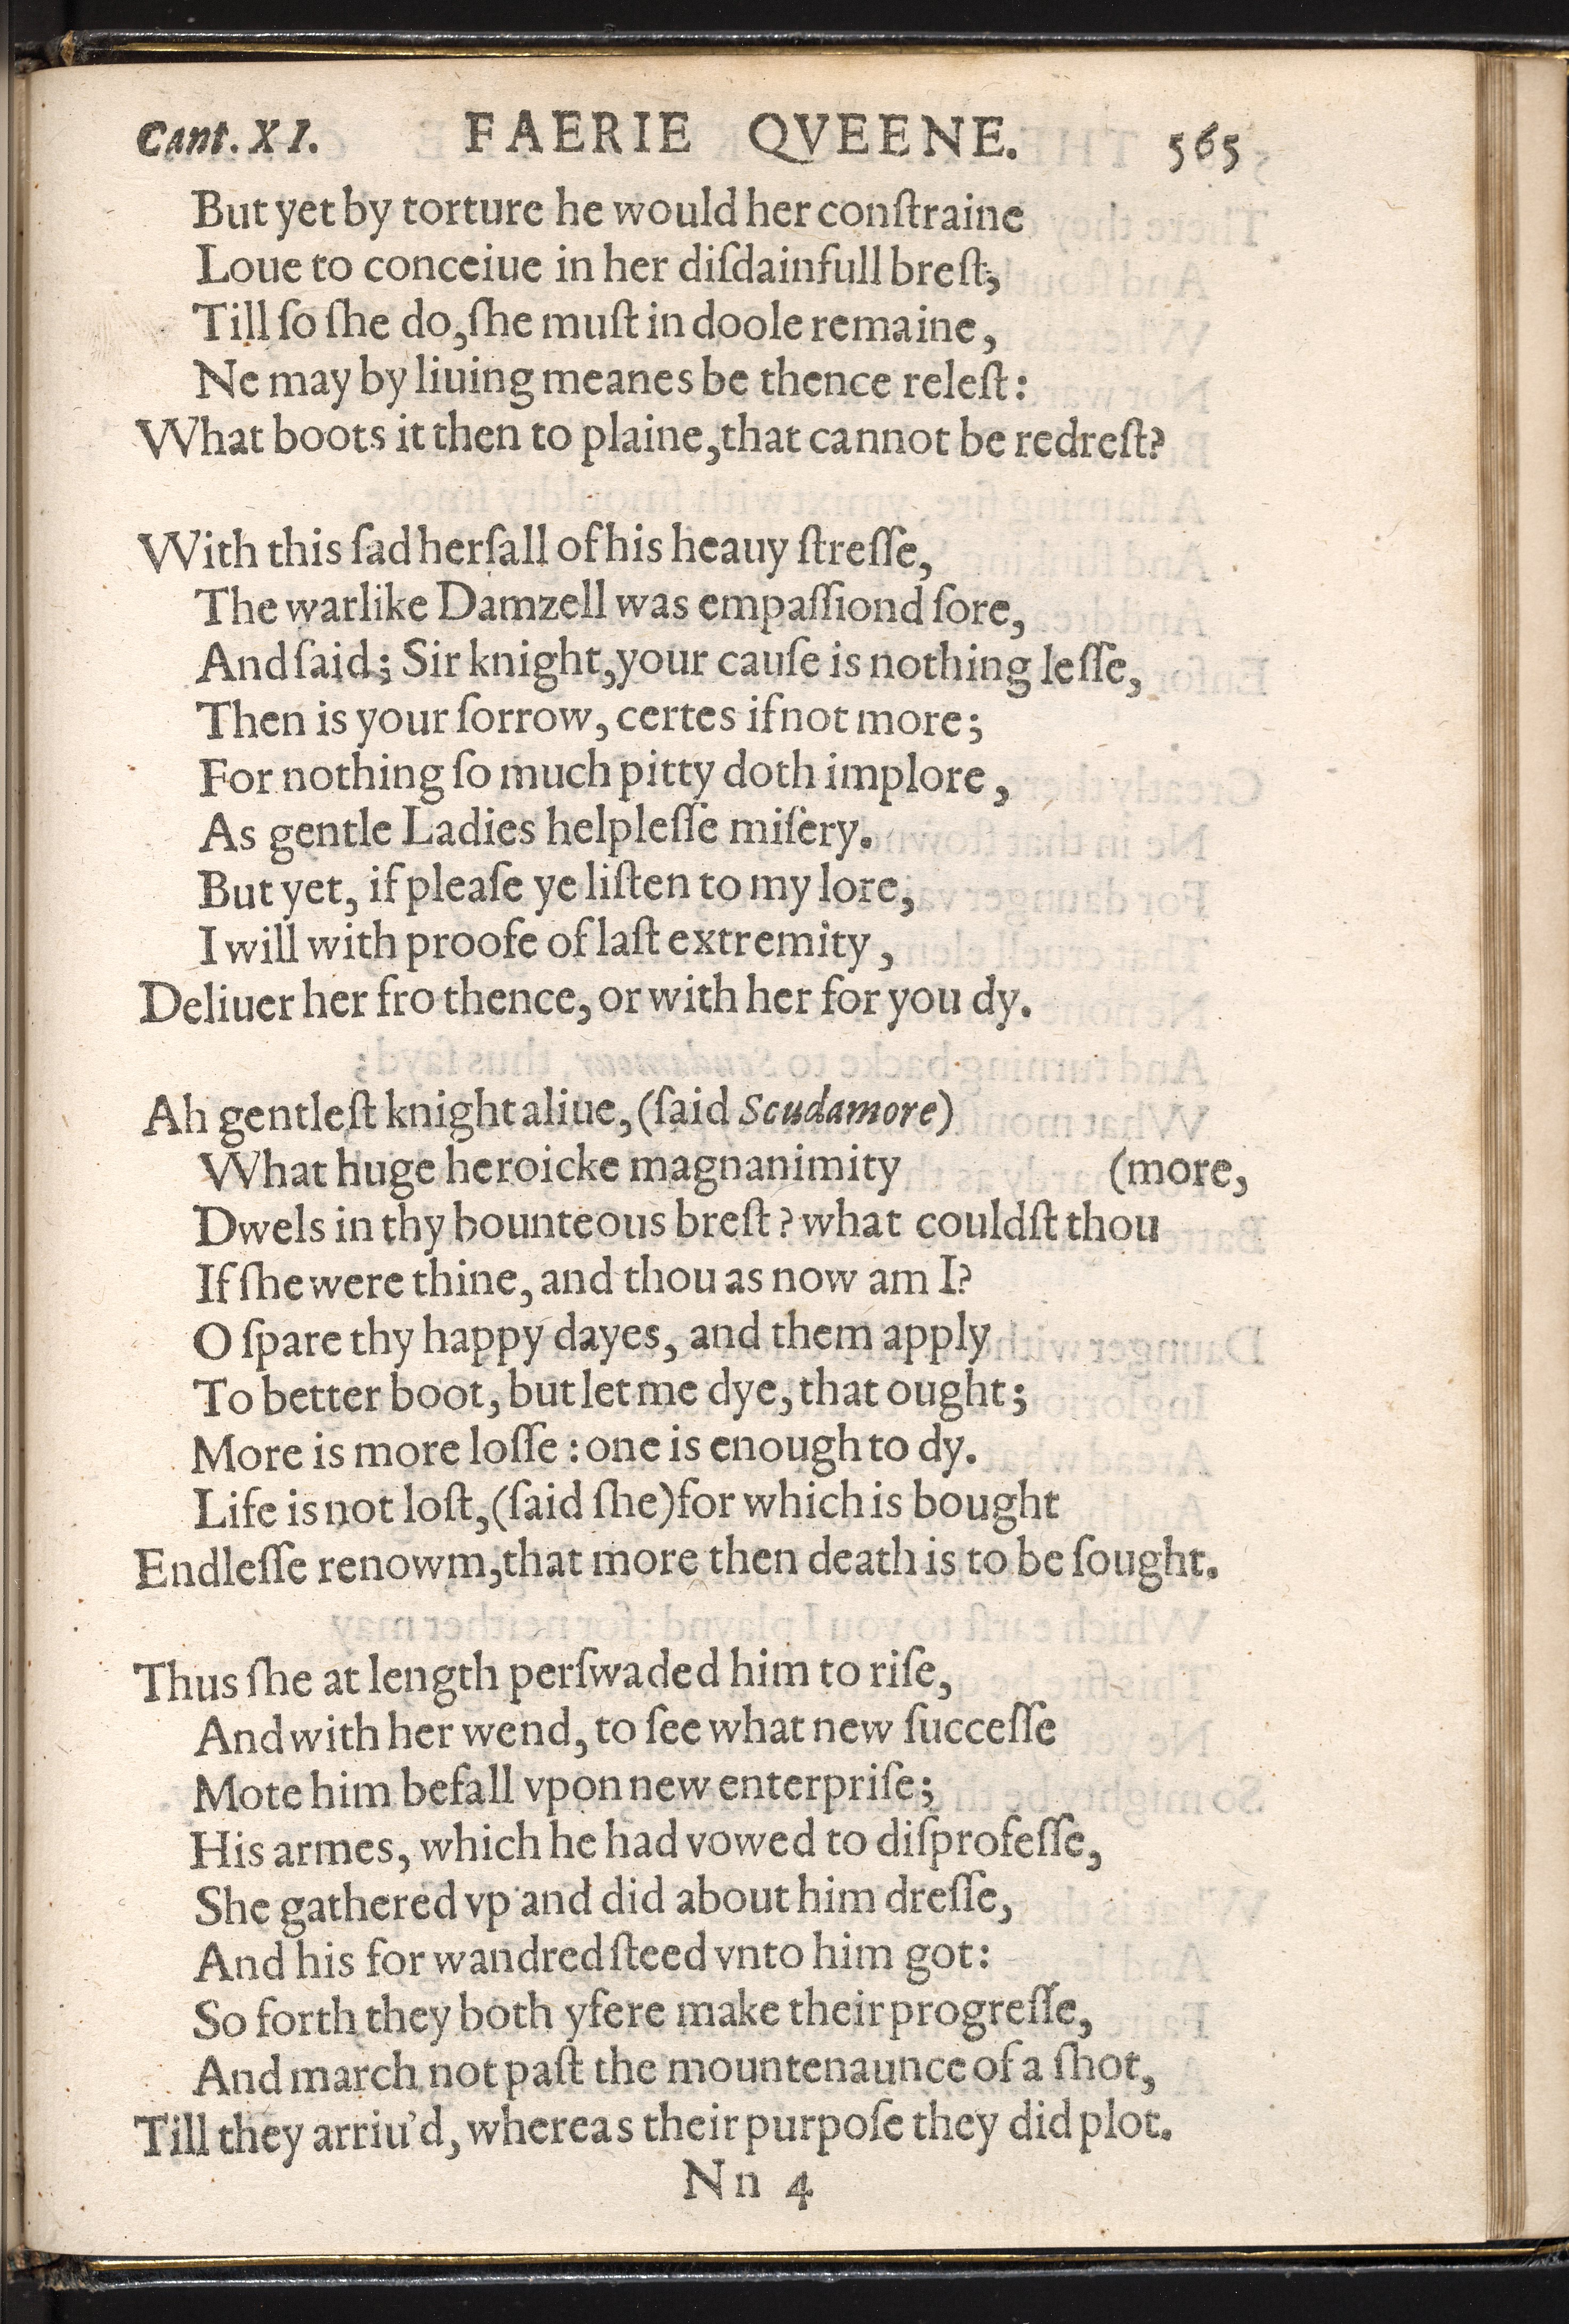 Cant. XI. FAERIE QVEENE. 565
But yet by torture he would her conſtraine
Loue to conceiue in her diſdainfull breſt;
Till ſo ſhe do, ſhe muſt in doole remaine,
Ne may by liuing meanes be thence releſt:
What boots it then to plaine, that cannot be redreſt?
With this ſad herſall of his heauy ſtreſſe,
The warlike Damzell was empaſſiond ſore,
And ſaid; Sir knight, your cauſe is nothing leſſe,
Then is your ſorrow, certes if not more;
For nothing ſo much pitty doth implore,
As gentle Ladies helpleſſe miſery.
But yet, if pleaſe ye liſten to my lore,
I will with proofe of laſt extremity,
Deliuer her fro thence, or with her for you dy.
Ah gentleſt knight aliue, (ſaid Scudamore)
What huge heroicke magnanimity (more,
Dwels in thy bounteous breſt? what couldſt thou
If ſhe were thine, and thou as now am I?
O ſpare thy happy dayes, and them apply
To better boot, but let me dye, that ought;
More is more loſſe: one is enough to dy.
Life is not loſt, (ſaid ſhe) for which is bought
Endleſſe renowm, that more then death is to be ſought.
Thus ſhe at length perſwaded him to riſe,
And with her wend, to ſee what new ſucceſſe
Mote him befall vpon new enterpriſe;
His armes, which he had vowed to diſprofeſſe,
She gathered vp and did about him dreſſe,
And his forwandred ſteed vnto him got:
So forth they both yfere make their progreſſe,
And march not paſt the mountenaunce of a ſhot,
Till they arriu'd, whereas their purpoſe they did plot.
Nn 4